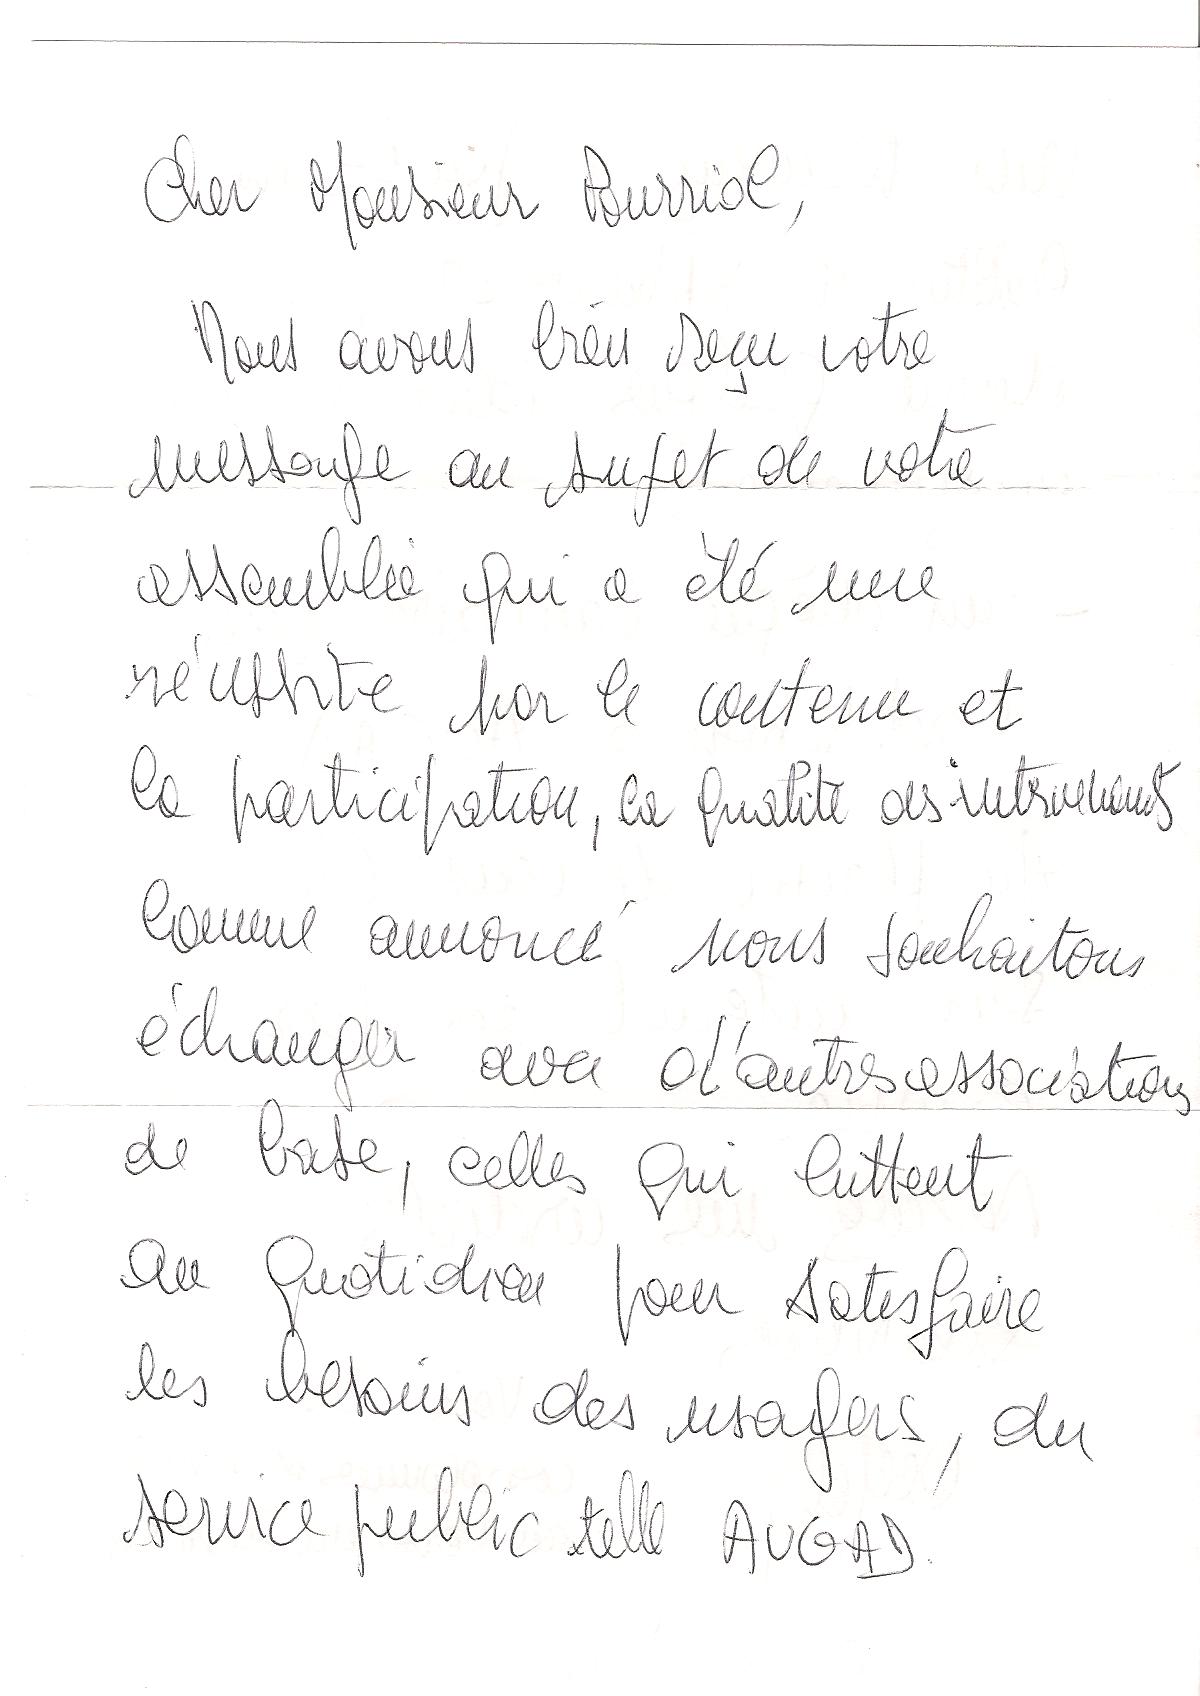 Cher Monsieur Burriol,
Nous avons bien reçu votre
message au sujet de votre
assemblée qui a été une
réussite par le contenu et
la participation, la qualité des intervenants
Comme annoncé nous souhaitons
échanger avec d'autres associations
de base, celles qui luttent
au quotidien pour satisfaire
les besoins des usagers, du
service public telle AVGAD.